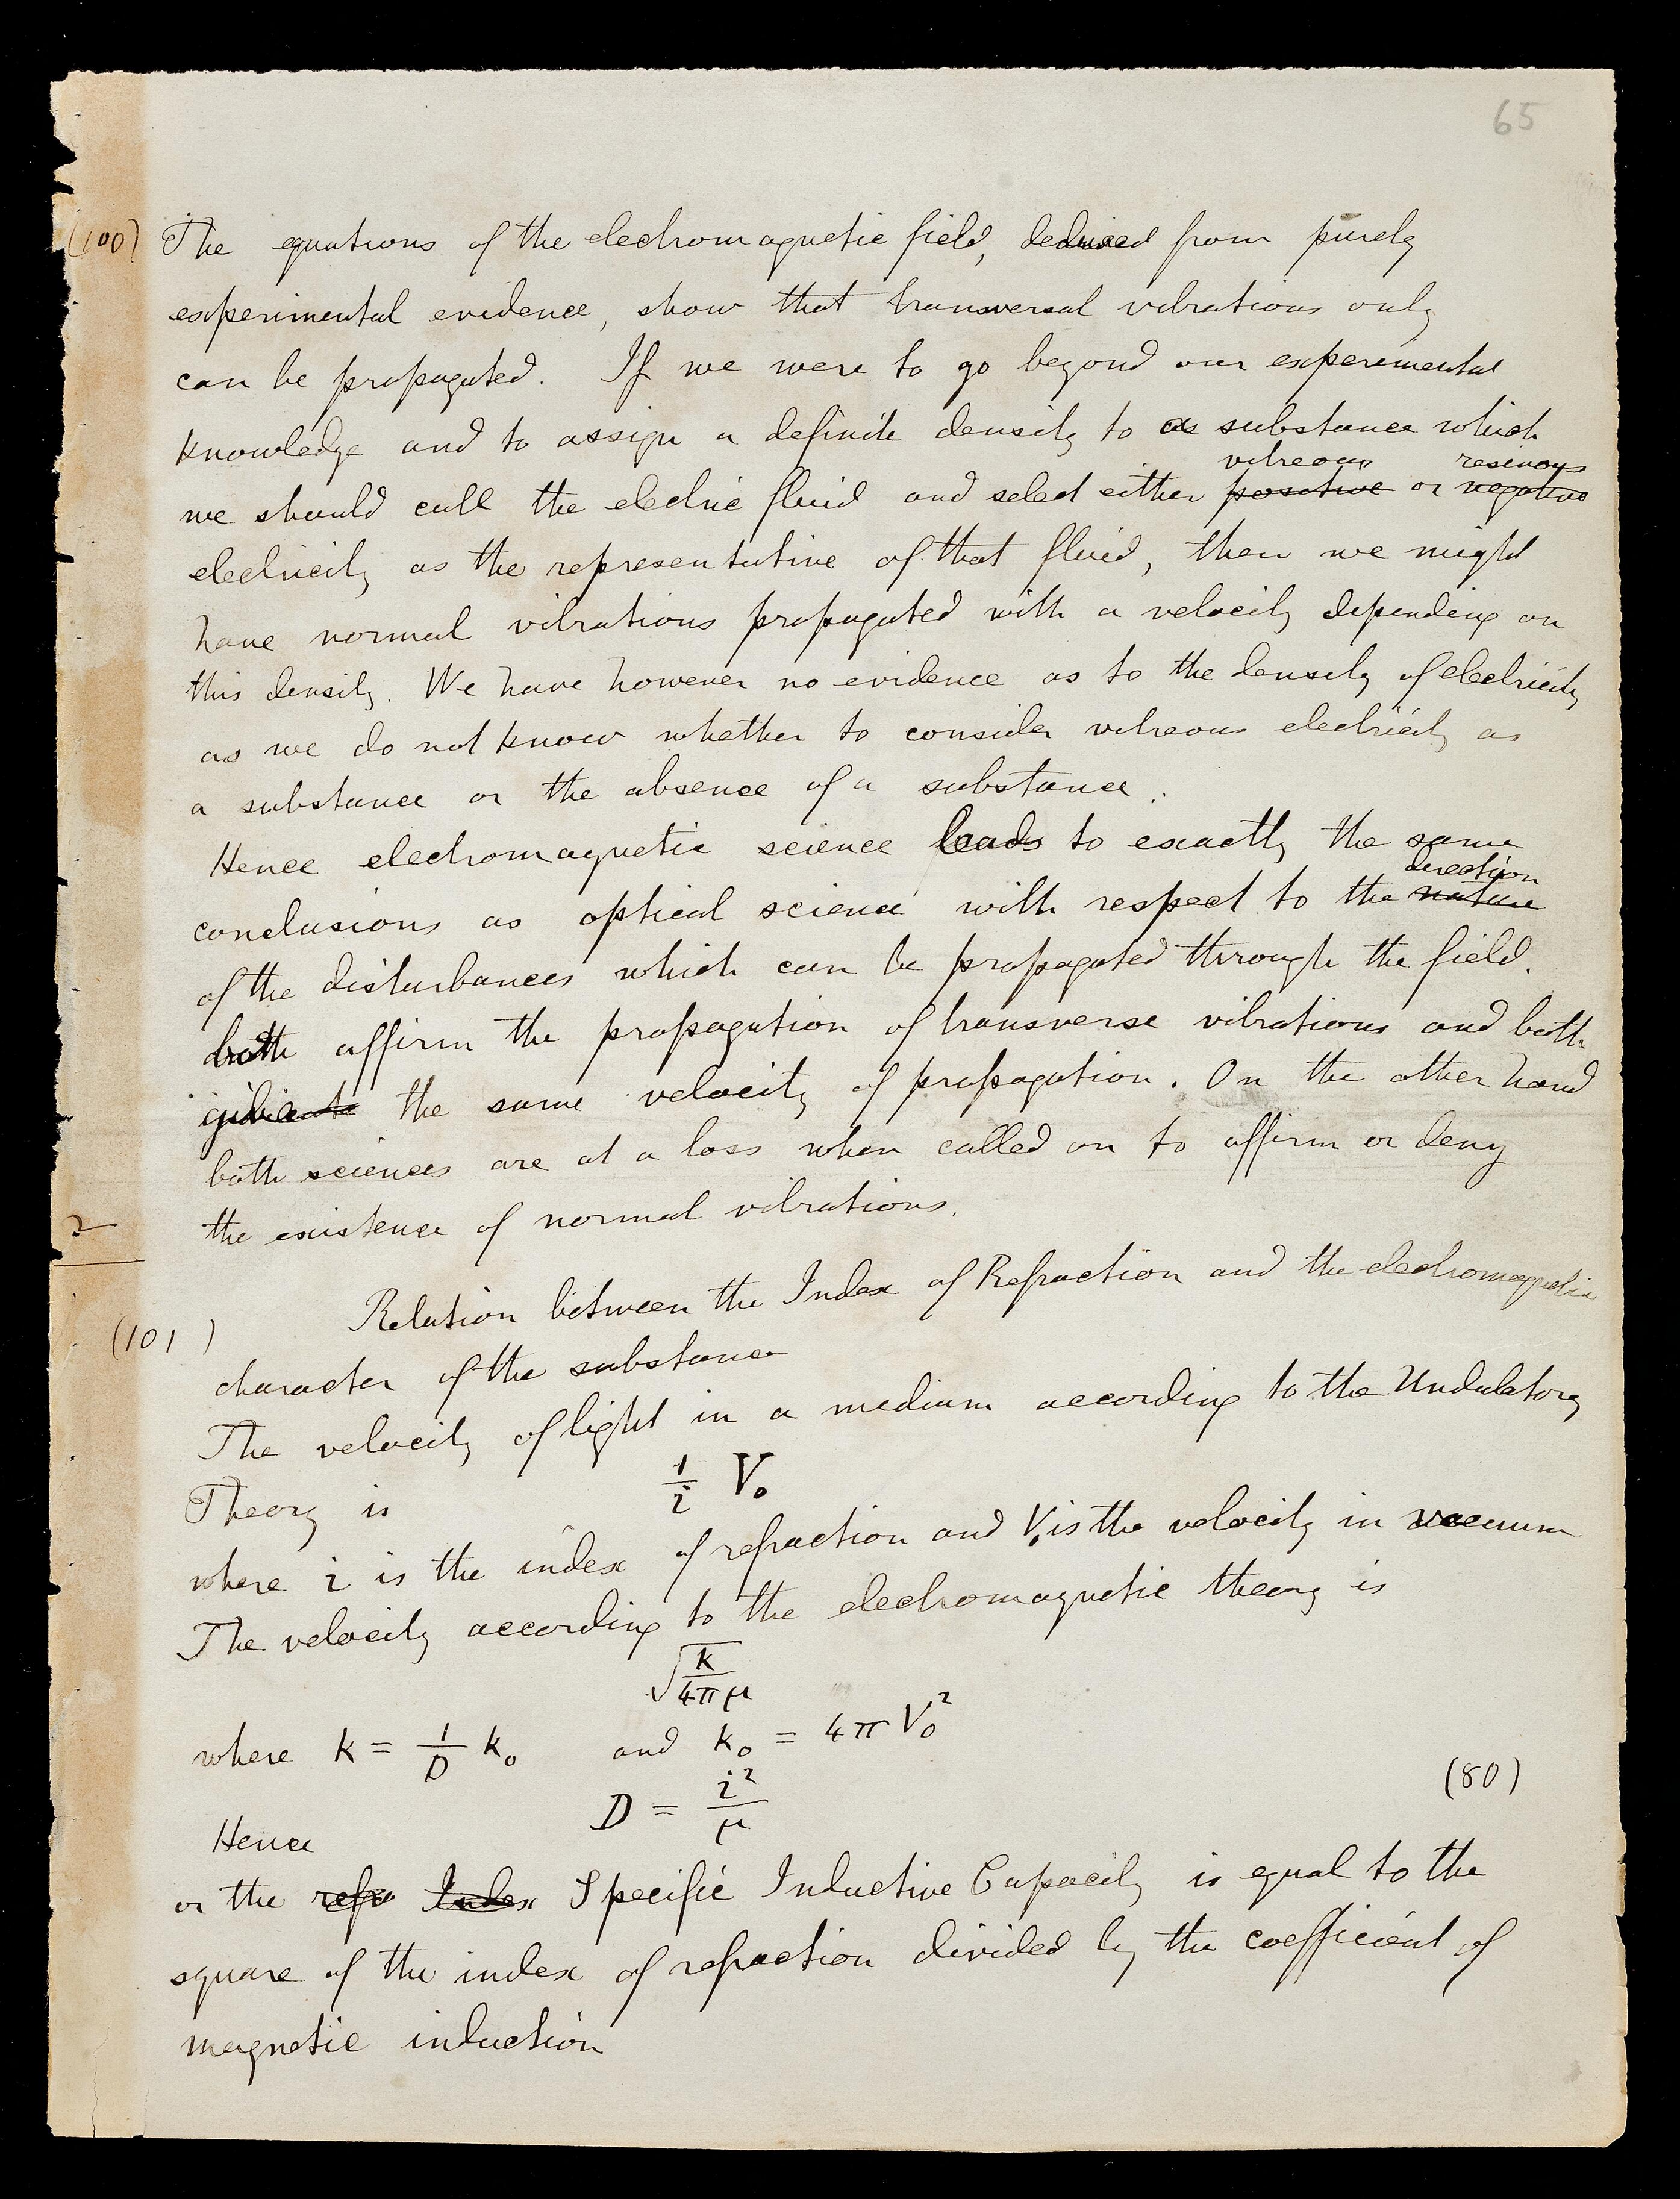 65
(100) The equations of the electromagnetic field, deduced from purely
experimental evidence, show that transversal vibrations only
can be propagated. If we were to go beyond our experimental
knowledge and to assign a definite density to a substance which
vitreous resinous
we should call the electric fluid and select either positive or negative
electricity as the representative of that fluid, then we might
have normal vibrations propagated with a velocity depending on
this density. We have however no evidence as to the density of electricity
as we do not know whether to consider vitreous electricity as
a substance or the absence of a substance.
Hence electromagnetic science leads to exactly the same
direction
conclusions as optical science with respect to the nature
of the disturbances which can be propagated through the field.
both affirm the propagation of transverse vibrations and both
the same velocity of propagation. On the other hand
both sciences are at a loss when called on to affirm or deny
the existence of normal vibrations.
2
Relation between the Index of Refraction and the electromagnetic
(101)
character of the substance
The velocity of light in a medium according to the Undulatory
Theory is 1/i V₀
where i is the index of refraction and V₀ is the velocity in vacuum
The velocity according to the electromagnetic theory is
√(k/4πμ)
where k = 1/D k₀ and k₀ = 4π V₀²
Hence D = i²/μ (80)
or the refr Index Specific Inductive Capacity is equal to the
square of the index of refraction divided by the coefficient of
magnetic induction